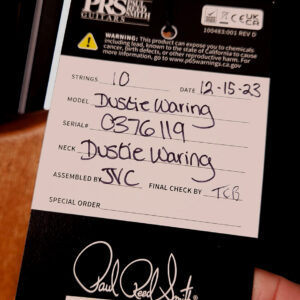 PRS
PAUL REED SMITH
GUITARS
100483:001 REV D
WARNING: This product can expose you to chemicals
including lead, known to the State of California to cause
cancer, birth defects, or other reproductive harm. For
more information, go to www.p65warnings.ca.gov
STRINGS 10 DATE 12-15-23
MODEL Dustie Waring
SERIAL# 0376119
NECK Dustie Waring
ASSEMBLED BY JVC FINAL CHECK BY TCB
SPECIAL ORDER
Paul Reed Smith